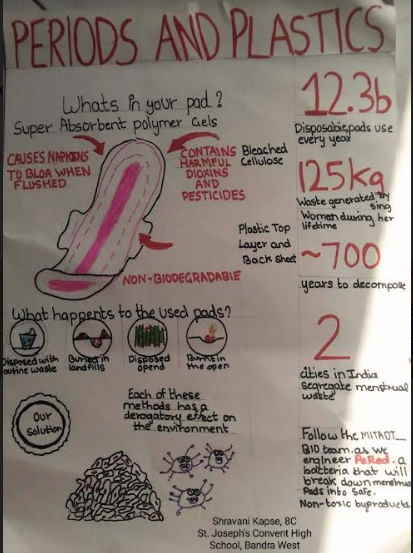 PERIODS AND PLASTICS
Whats in your pad?
Super Absorbent polymer Gels
CAUSES NAPKINS
TO BLOA WHEN
FLUSHED
CONTAINS
HARMFUL
DIOXINS
AND
PESTICIDES
Bleached
Cellulose
Plastic Top
Layer and
Back sheet
NON-BIODEGRADABLE
12.3b
Disposable pads use
every year
125kg
Waste generated by
sing
Women during her
lifetime
~700
years to decompose
2
cities in India
segregate menstrual
waste
What happents to the used pads?
Disposed with
outine waste
Buried in
landfills
Disposed
opend
Burns in
the open
Our
Solution
Each of these
methods has a
derogatory effect on
the environment
Follow the
BIO team as we
engineer PeRed. a
bacteria that will
break down menstrua
Pads into safe.
Non-toxic byproducts
Shravani Kapse, 8C
St. Joseph's Convent High
School, Bandra West